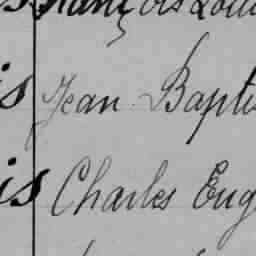 François Loui
is Jean Baptis
is Charles Eug